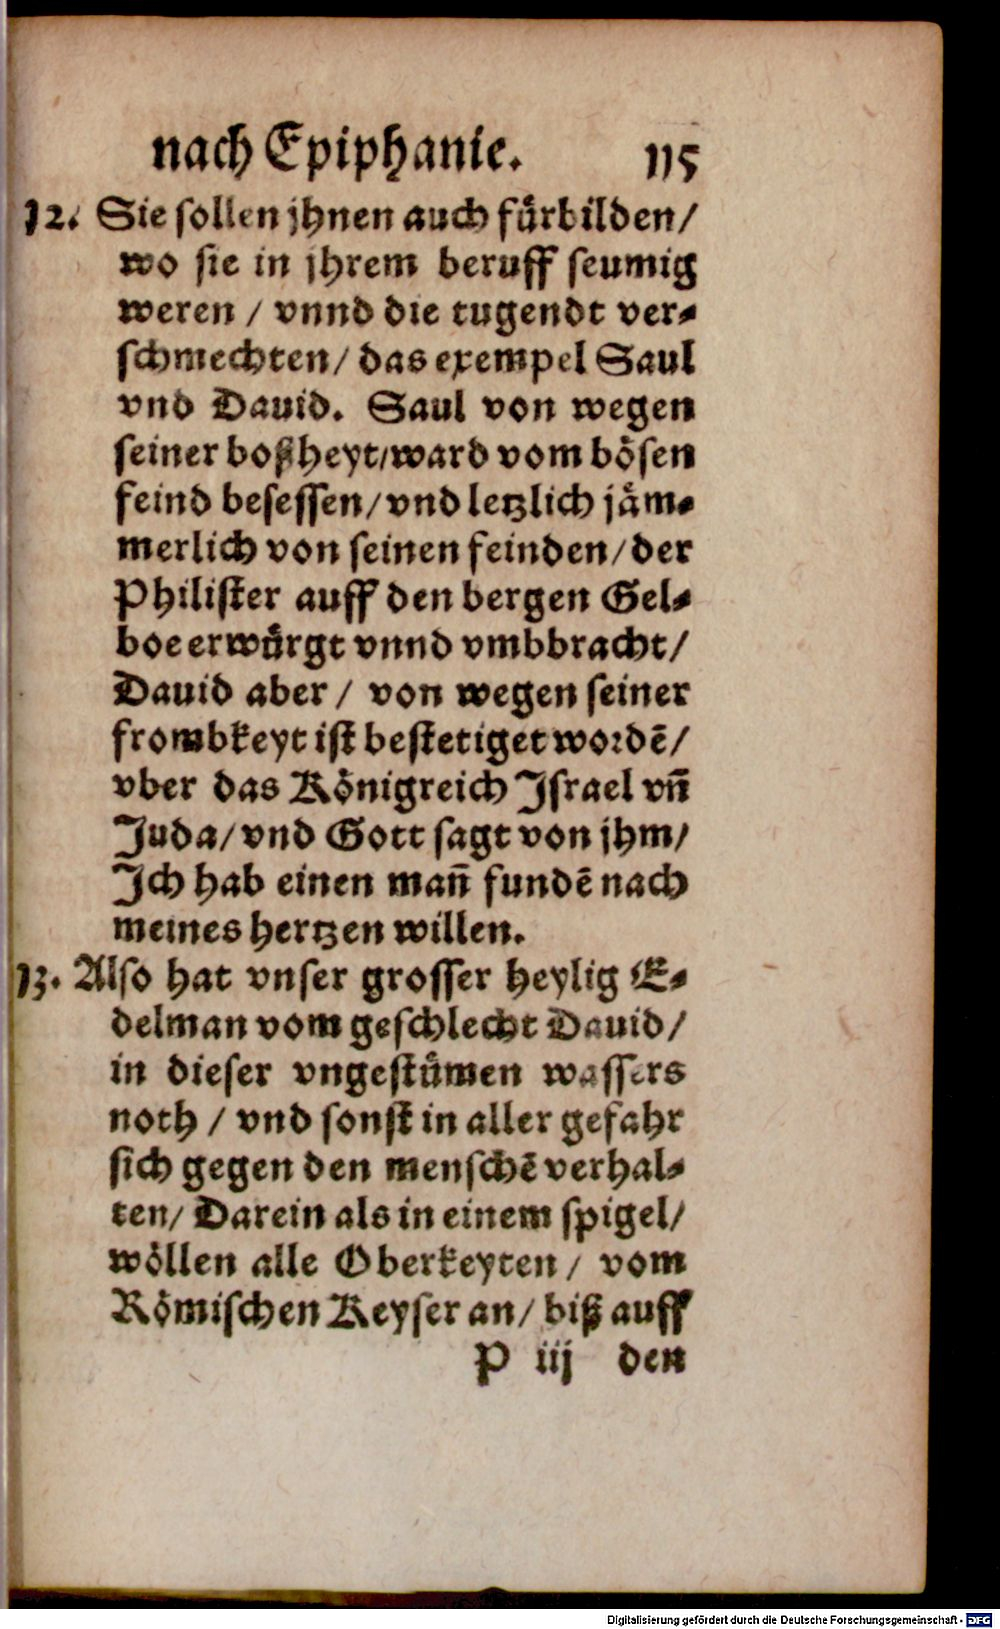 nach Epiphanie. 115
12. Sie sollen jhnen auch fuͤrbilden/
wo sie in jhrem beruff seumig
weren / vnnd die tugendt ver-
schmechten/ das exempel Saul
vnd Dauid. Saul von wegen
seiner boßheyt/ward vom boͤsen
feind besessen/vnd letzlich jaͤm-
merlich von seinen feinden/der
Philister auff den bergen Gel-
boe erwuͤrgt vnnd vmbbracht/
Dauid aber / von wegen seiner
frombkeyt ist bestetiget wordē/
vber das Koͤnigreich Israel vn̄
Juda/vnd Gott sagt von jhm/
Ich hab einen man̄ fundē nach
meines hertzen willen.
13. Also hat vnser grosser heylig E-
delman vom geschlecht Dauid/
in dieser vngestuͤmen wassers
noth / vnd sonst in aller gefahr
sich gegen den menschē verhal-
ten/ Darein als in einem spigel/
woͤllen alle Oberkeyten / vom
Roͤmischen Keyser an/ biß auff
P iij den
Digitalisierung gefördert durch die Deutsche Forschungsgemeinschaft - DFG